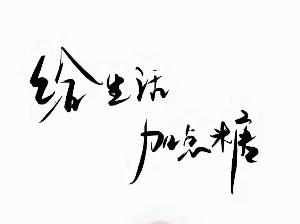 给生活
加点糖